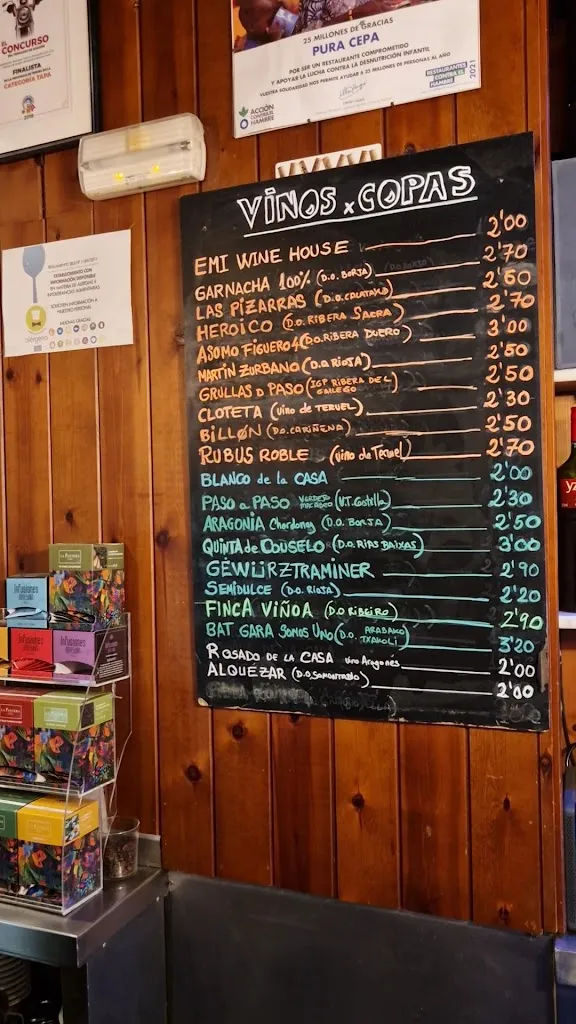 EL
CONCURSO
FINALISTA
CATEGORÍA TAPA
25 MILLONES DE GRACIAS
PURA CEPA
POR SER UN RESTAURANTE COMPROMETIDO
Y APOYAR LA LUCHA CONTRA LA DESNUTRICIÓN INFANTIL
VUESTRA SOLIDARIDAD NOS PERMITE AYUDAR A 25 MILLONES DE PERSONAS AL AÑO
ACCIÓN
CONTRA EL
HAMBRE
RESTAURANTES
CONTRA EL
HAMBRE
2021
ESTABLECIMIENTO CON
INFORMACIÓN DISPONIBLE
EN MATERIA DE ALERGIAS E
INTOLERANCIAS ALIMENTARIAS
SOLICITEN INFORMACIÓN A
NUESTRO PERSONAL
MUCHAS GRACIAS
VINOS x COPAS
EMI WINE HOUSE 2'00
GARNACHA 100% (D.O. BORJA) 2'70
LAS PIZARRAS (D.O. CALATAYUD) 2'60
HEROICO (D.O. RIBERA SACRA) 2'70
ASOMO FIGUERO 4 (D.O. RIBERA DUERO) 3'00
MARTIN ZURBANO (D.O. RIOJA) 2'50
GRULLAS D PASO (IGP RIBERA DEL GALLEGO) 2'50
CLOTETA (vino de TERUEL) 2'30
BILLON (D.O. CARIÑENA) 2'50
RUBUS ROBLE (vino de Teruel) 2'70
BLANCO de la CASA 2'00
PASO a PASO VERDEJO MACABEO (V.T. Castilla) 2'30
ARAGONIA Chardonay (D.O. BORJA) 2'50
QUINTA de COUSELO (D.O. RIAS BAIXAS) 3'00
GEWÜRZTRAMINER 2'90
SEMIDULCE (D.O. RIOJA) 2'20
FINCA VIÑOA (D.O RIBEIRO) 2'90
BAT GARA SOMOS UNO (D.O. ARABAKO TXAKOLI) 3'20
ROSADO DE LA CASA vino Aragones 2'00
ALQUEZAR (D.O. SOMONTANO) 2'00
Infusiones
Infusiones
Infusiones
LA PANTERA